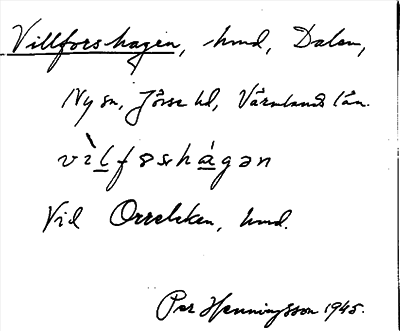 Villforshagen, hmd, Dalen,
Ny sn, Jösse hd, Värmlands län.
vìlfɷshágən
Vid Orrebcken, hmd.
Per Henningsson 1945.